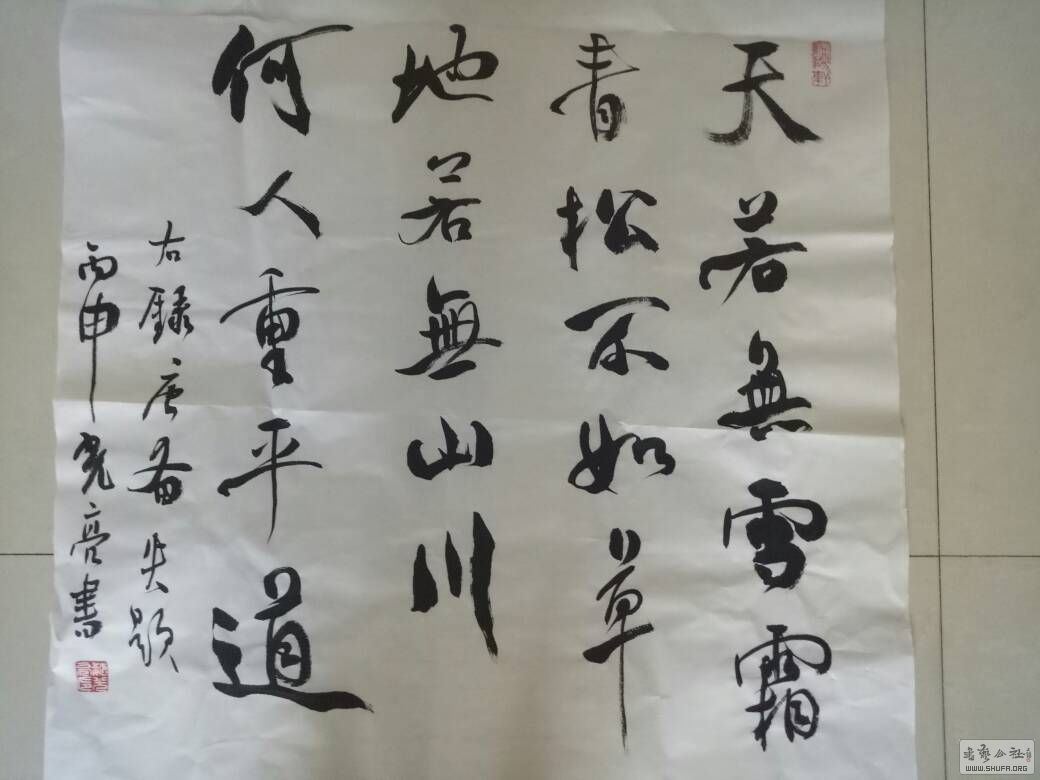 天若無雪霜
青松不如草
地若無山川
何人重平道
右錄唐备失題
丙申堯亮書
書藝公社
WWW.SHUFA.ORG